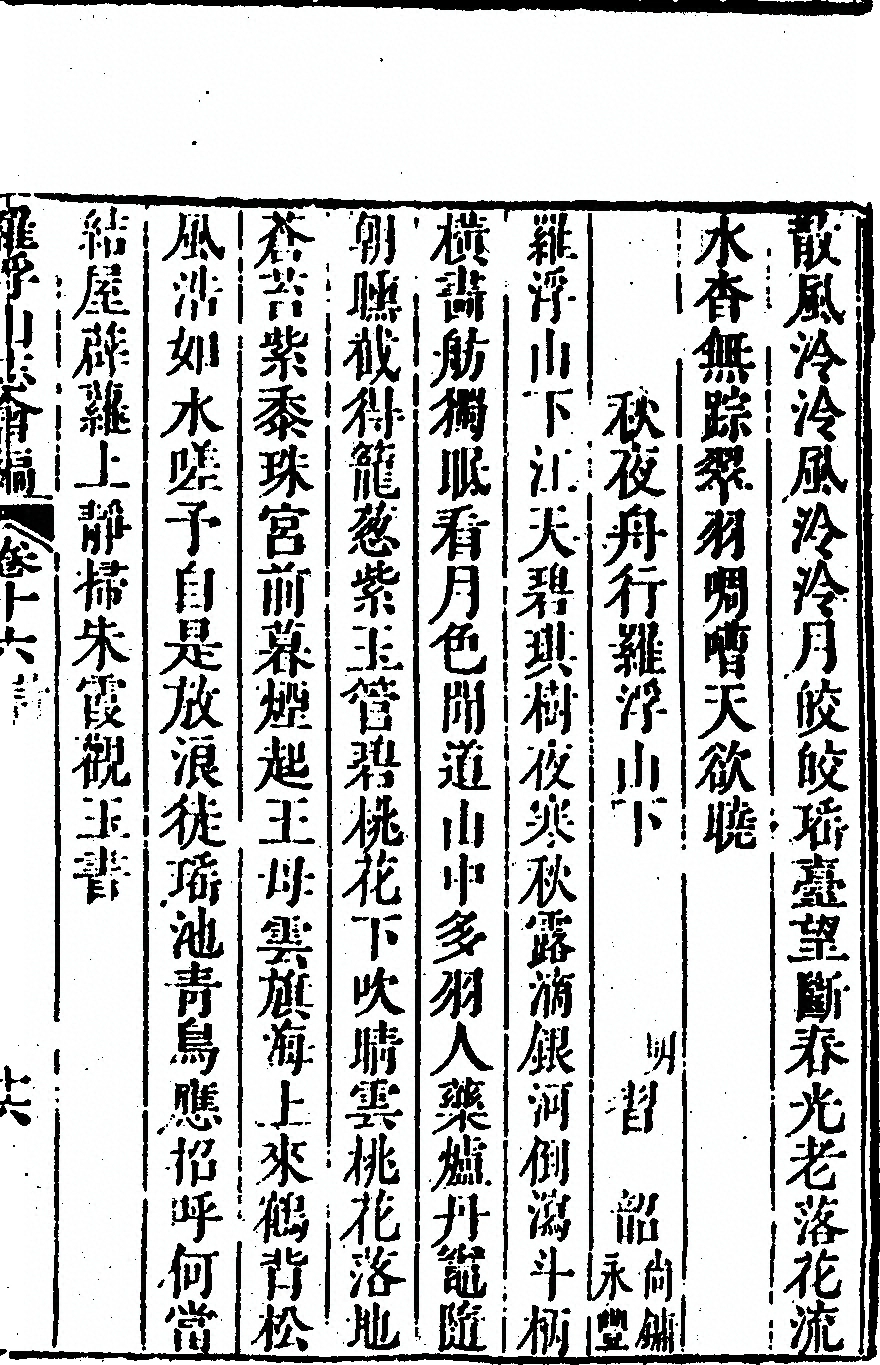 散風泠泠風泠泠月皎皎瑤臺望斷春光老落花流
水杳無踪翠羽啁嘈天欲曉
秋夜舟行羅浮山下
明習韶尚鏞永豐
羅浮山下江天碧琪樹夜寒秋露滴銀河倒瀉斗柄
橫畵舫獨眠看月色聞道山中多羽人藥爐丹竈隨
朝曛截得籠葱紫玉管碧桃花下吹晴雲桃花落地
蒼苔紫黍珠宮前暮煙起王母雲旗海上來鶴背松
風浩如水嗟予自是放浪徒瑤池青鳥應招呼何當
結屋薜蘿上靜掃朱霞觀玉書
羅浮山志會編
卷十六 詩
十六